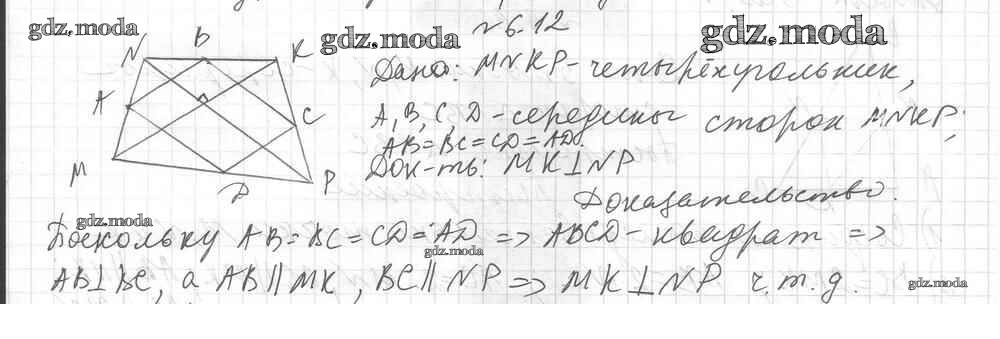 № 6.12
gdz.moda
gdz.moda
gdz.moda
N B K
A C
M D P
Дано: MNKP - четырёхугольник,
A, B, C, D - середины сторон MNKP;
AB = BC = CD = AD.
Док-ть: MK ⊥ NP
Доказательство.
gdz.moda
Поскольку AB = BC = CD = AD => ABCD - квадрат =>
gdz.moda
AB ⊥ BC, а AB || MK, BC || NP => MK ⊥ NP ч.т.д.
gdz.moda